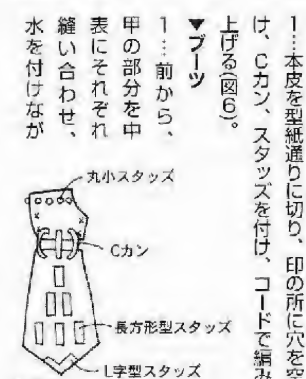 1…本皮を型紙通りに切り、印の所に穴を空
け、Cカン、スタッズを付け、コードで編み
上げる(図6)。
▼ブーツ
1…前から、
甲の部分を中
表にそれぞれ
縫い合わせ、
水を付けなが
丸小スタッズ
Cカン
長方形型スタッズ
L字型スタッズ